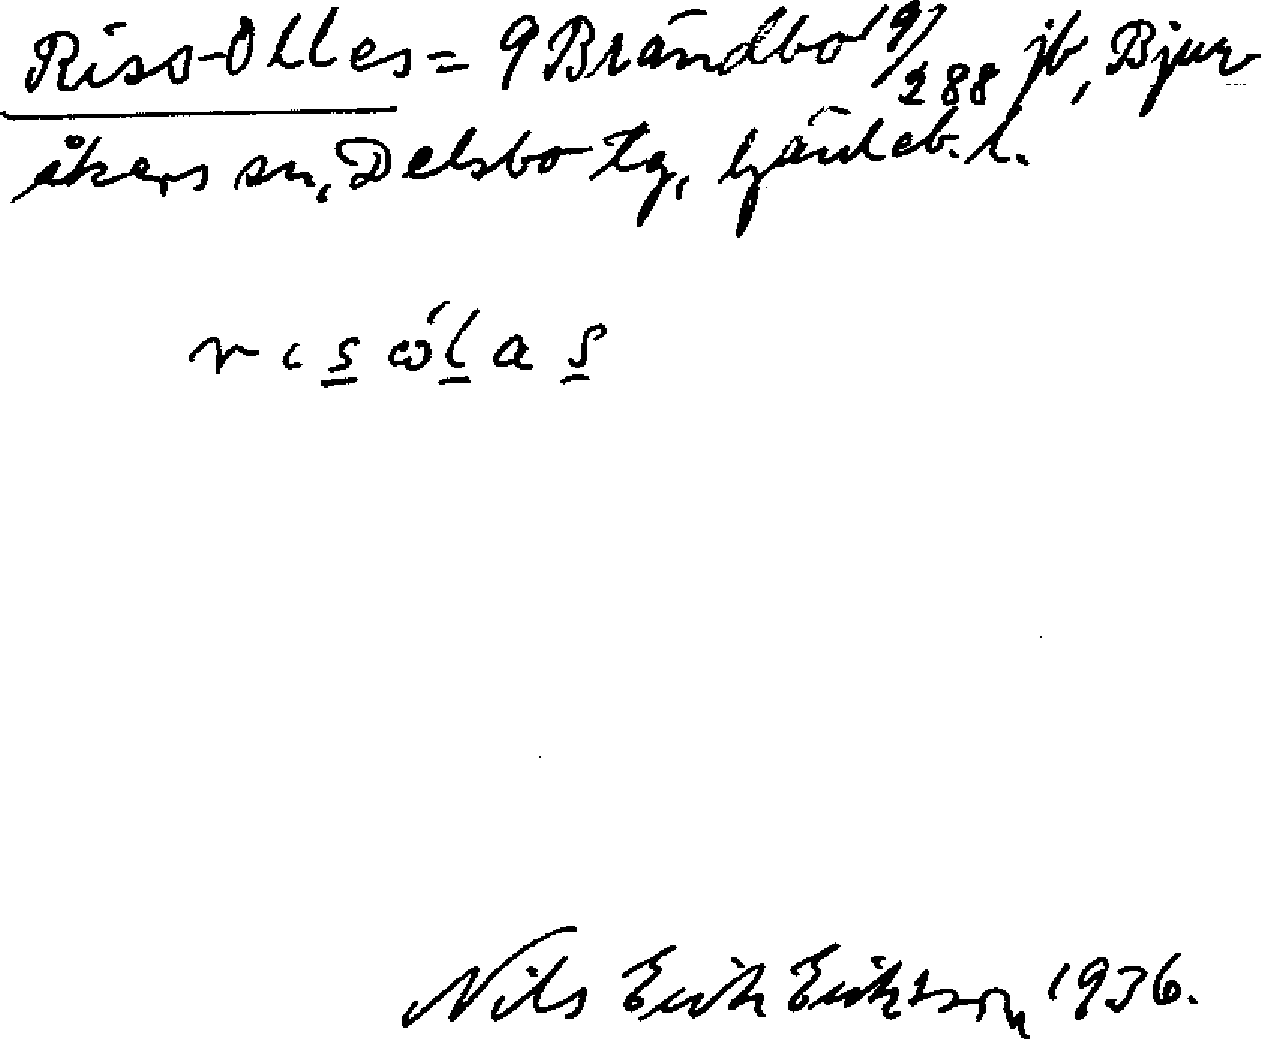 Riss-Olles = 9 Brändbo 19/288 jb, Bjur-
åkers sn, Delsbo tg, Gävleb. l.
Nils Erik Eriksson 1936.